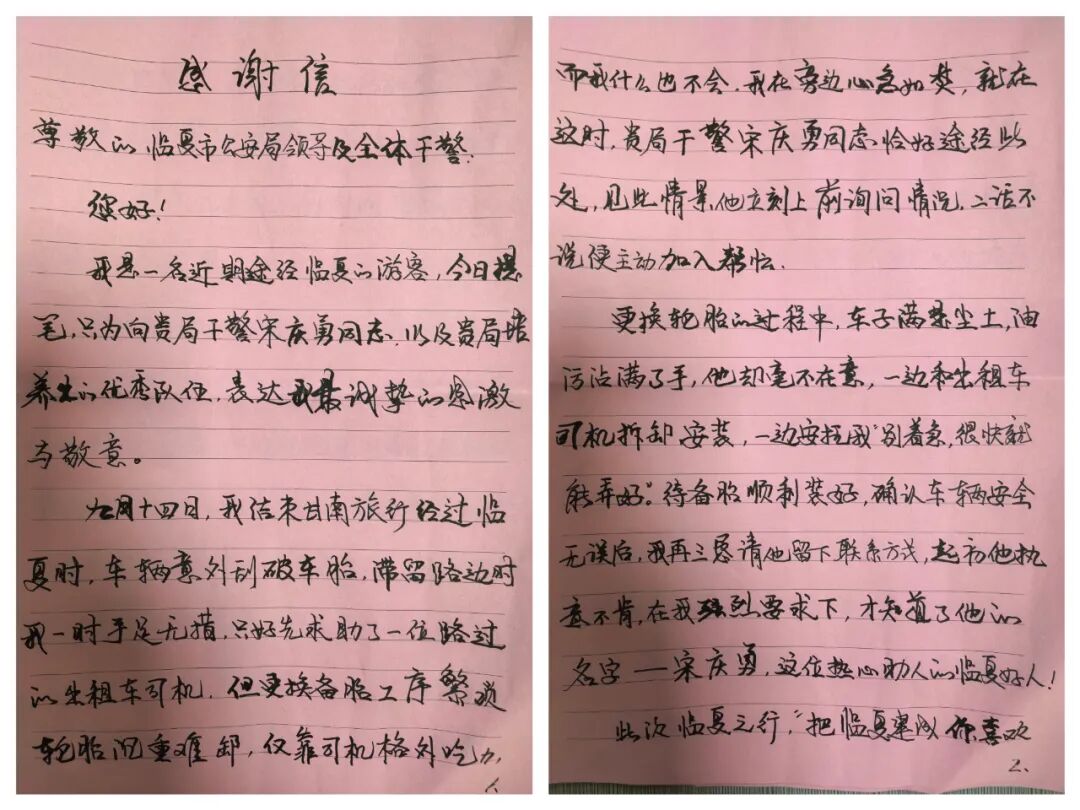 感谢信
尊敬的临夏市公安局领导及全体干警:
您好!
我是一名近期途经临夏的游客,今日提
笔,只为向贵局干警宋庆勇同志,以及贵局培
养出的优秀队伍,表达我最诚挚的感激
与敬意。
九月十四日,我结束甘南旅行经过临
夏时,车辆意外刮破车胎,滞留路边时
我一时手足无措,只好先求助了一位路过
的出租车司机,但更换备胎工序繁琐
轮胎沉重难卸,仅靠司机格外吃力,
1、
而我什么也不会,我在旁边心急如焚,就在
这时,贵局干警宋庆勇同志恰好途经此
处,见此情景,他立刻上前询问情况,二话不
说便主动加入帮忙.
更换轮胎的过程中,车子满是尘土,油
污沾满了手,他却毫不在意,一边和出租车
司机拆卸安装,一边安抚我“别着急,很快就
能弄好”。待备胎顺利装好,确认车辆安全
无误后,我再三恳请他留下联系方式,起初他执
意不肯,在我强烈要求下,才知道了他的
名字——宋庆勇,这位热心助人的临夏好人!
此次临夏之行,“把临夏建成你喜欢
2、